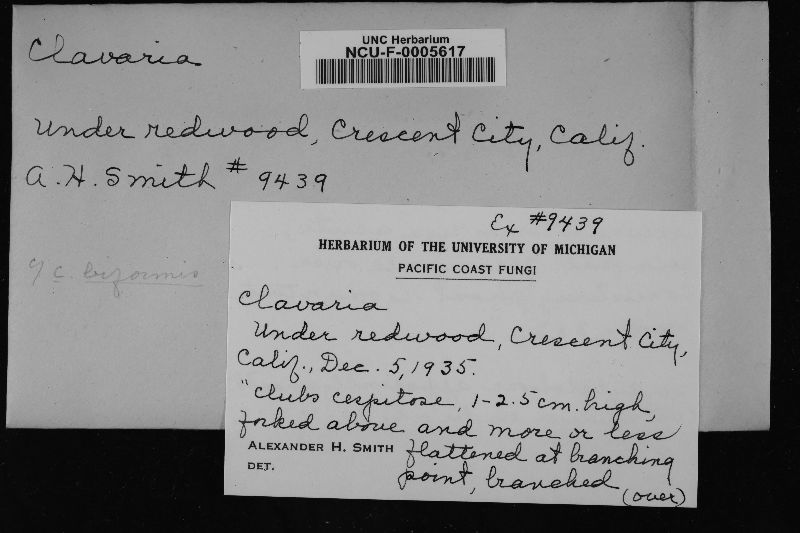 UNC Herbarium
NCU-F-0005617
Clavaria
Under redwood, Crescent City, Calif.
A. H. Smith # 9439
C. biformis
Ex #9439
HERBARIUM OF THE UNIVERSITY OF MICHIGAN
PACIFIC COAST FUNGI
Clavaria
Under redwood, Crescent City,
Calif., Dec. 5, 1935.
"Clubs cespitose, 1-2.5 cm. high,
forked above and more or less
ALEXANDER H. SMITH flattened at branching
DET. point, branched (over)